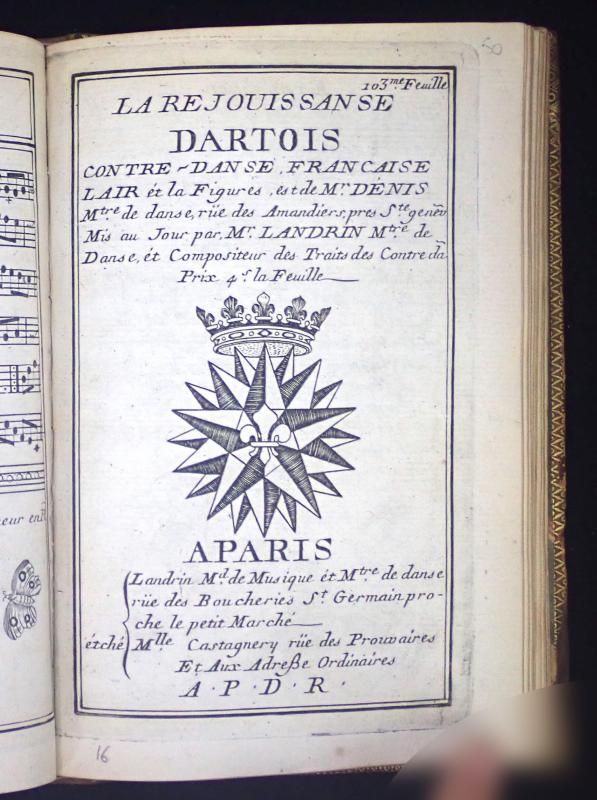 50
103.me Feuille
LA REJOUISSANSE
DARTOIS
CONTRE-DANSE, FRANCAISE
LAIR ét la Figures, est de Mr. DÉNIS
Mtre. de danse, rüe des Amandiers, pres Ste. genev̄
Mis au Jour par, Mr. LANDRIN Mtre. de
Danse, ét Compositeur des Traits des Contre dā
Prix 4 s. la Feuille
APARIS
Landrin Md. de Musique ét Mtre. de danse
rüe des Boucheries St. Germain pro-
che le petit Marché
étché Mlle Castagnery rüe des Prouvaires
Et Aux Adreße Ordinaires
A · P · D · R ·
eur enfl
16